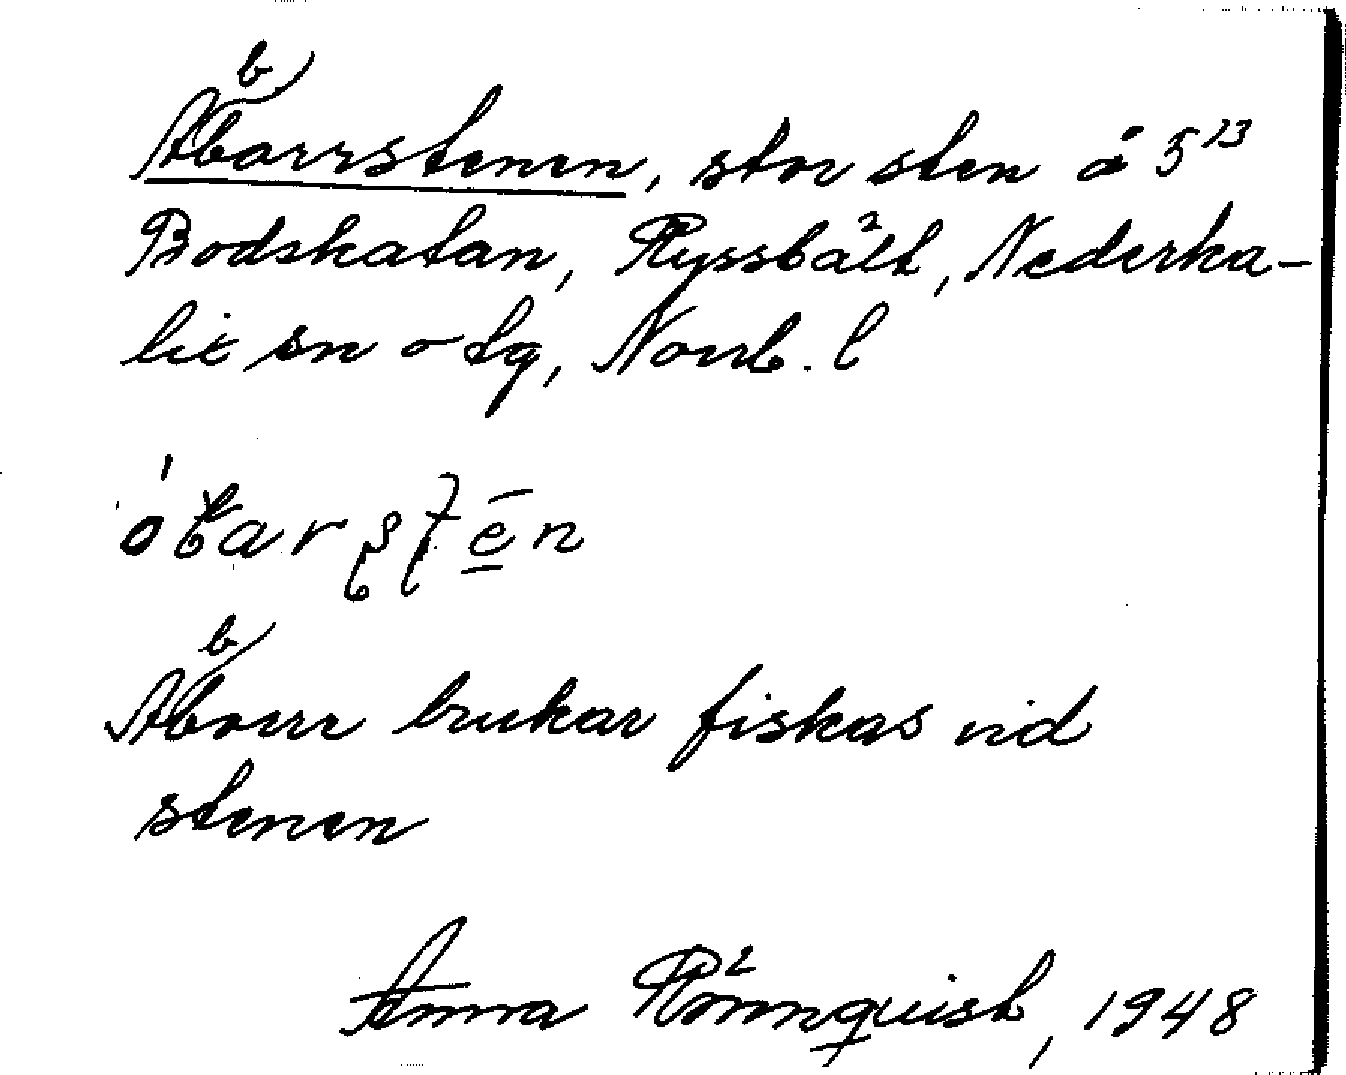 Abborrstenen, stor sten å 5¹³
Bodskatan, Ryssbält, Nederka-
lix sn o tg, Norrb. l
Abborr brukar fiskas vid
stenen
Anna Rönnquist, 1948